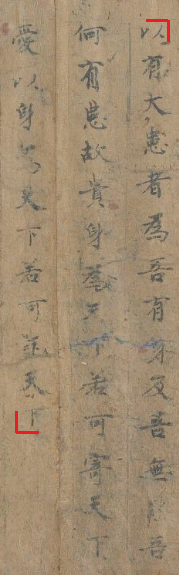 以有大患者為吾有身及吾無身吾
何有患故貴身為天下若可寄天下
愛以身為天下若可託天下